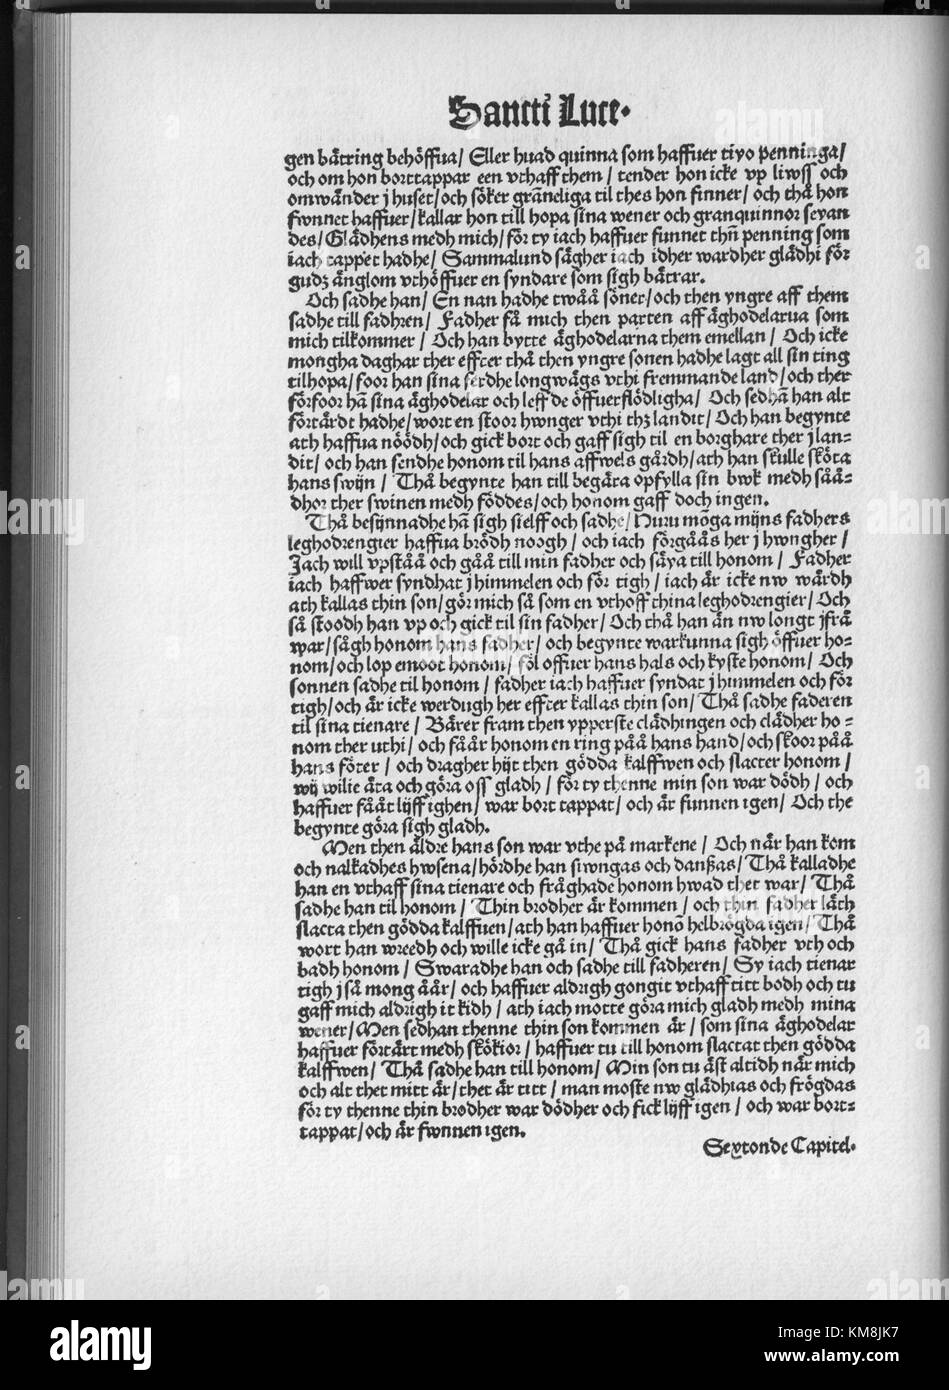 Sancti Luce.
gen bätring behöffua/ Eller huad quinna som haffuer tiyo penninga/
och om hon borttappar een vthaff them/ tender hon icke vp liwss och
omwänder j huset/och söker gräneliga til thes hon finner/och thå hon
fwnnet haffuer/kallar hon till hopa sina wener och granquinnor seyan
des/Glädhens medh mich/för ty iach haffuer funnet thñ penning som
iach tappet hadhe/ Sammalund sägher iach idher wardher glädhi för
gudz änglom vthöffuer en syndare som sigh bätrar.
Och sadhe han/ En nan hadhe twåå söner/och then yngre aff them
sadhe till fadhren/ Fadher få mich then parten aff äghodelarua som
mich tilkommer/ Och han bytte äghodelarna them emellan/ Och icke
mongha daghar ther effter thå then yngre sonen hadhe lagt all sin ting
tilhopa/foor han sina ferdhe longwägs vthi fremmande land/och ther
förfoor hã sina äghodelar och leffde öffuerflödligha/ Och sedhã han alt
förtärdt hadhe/wort en stoor hwnger vthi thz landit/Och han begynte
ath haffua nöödh/och gick bort och gaff sigh til en borghare ther j lan=
dit/ och han sendhe honom til hans affwels gårdh/ath han skulle sköta
hans swijn/ Thå begynte han till begära opfylla sin bwk medh såå=
dhor ther swinen medh föddes/och honom gaff doch ingen.
Thå besijnnadhe hã sigh sielff och sadhe/Huru mõga mijns fadhers
leghodrengier haffua brödh noogh/ och iach förgåås her j hwngher/
Jach will vpståå och gåå till min fadher och säya till honom/ Fadher
iach haffwer syndhat j himmelen och för tigh/ iach är icke nw wärdh
ath kallas thin son/gör mich så som en vthoff thina leghodrengier/Och
så stoodh han vp och gick til sin fadher/ Och thå han än nw longt jfrå
war/sågh honom hans fadher/och begynte warkunna sigh öffuer ho=
nom/och lop emoot honom/ föl offuer hans hals och kyste honom/ Och
sonnen sadhe til honom/ fadher iach haffuer syndat j himmelen och för
tigh/och är icke werdugh her effter kallas thin son/ Thå sadhe faderen
til sina tienare/ Bärer fram then ypperste clädhingen och clädher ho=
nom ther uthi/ och fåår honom en ring påå hans hand/och skoor påå
hans föter/ och dragher hijt then gödda kalffwen och slacter honom/
wij wilie äta och göra oss gladh/ för ty thenne min son war dödh/ och
haffuer fååt lijff ighen/ war bort tappat/och är funnen igen/ Och the
begynte göra sigh gladh.
Men then äldre hans son war vthe på markene/ Och när han kom
och nalkadhes hwsena/hördhe han siwngas och danßas/ Thå kalladhe
han en vthaff sina tienare och fråghade honom hwad thet war/ Thå
sadhe han til honom/ Thin brodher är kommen/ och thin fadher läth
slacta then gödda kalffuen/ath han haffuer honõ helbrögda igen/ Thå
wort han wreedh och wille icke gå in/ Thå gick hans fadher vth och
badh honom/ Swaradhe han och sadhe till fadheren/ Sy iach tienar
tigh j så mong åår/ och haffuer aldrigh gongit vthaff titt bodh och tu
gaff mich aldrigh it kidh/ ath iach motte göra mich gladh medh mina
wener/Men sedhan thenne thin son kommen är/ som sina äghodelar
haffuer förtärt medh skökior/ haffuer tu till honom slactat then gödda
kalffwen/ Thå sadhe han till honom/ Min son tu äst altidh när mich
och alt thet mitt är/thet är titt/ man moste nw glädhias och frögdas
för ty thenne thin brodher war dödher och fick lijff igen/ och war bort=
tappat/och är fwnnen igen.
Sextonde Capitel.
alamy
Image ID: KM8JK7
www.alamy.com